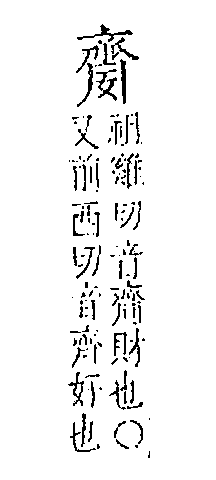 祖雞切音齎財也〇
又前西切音齊好也